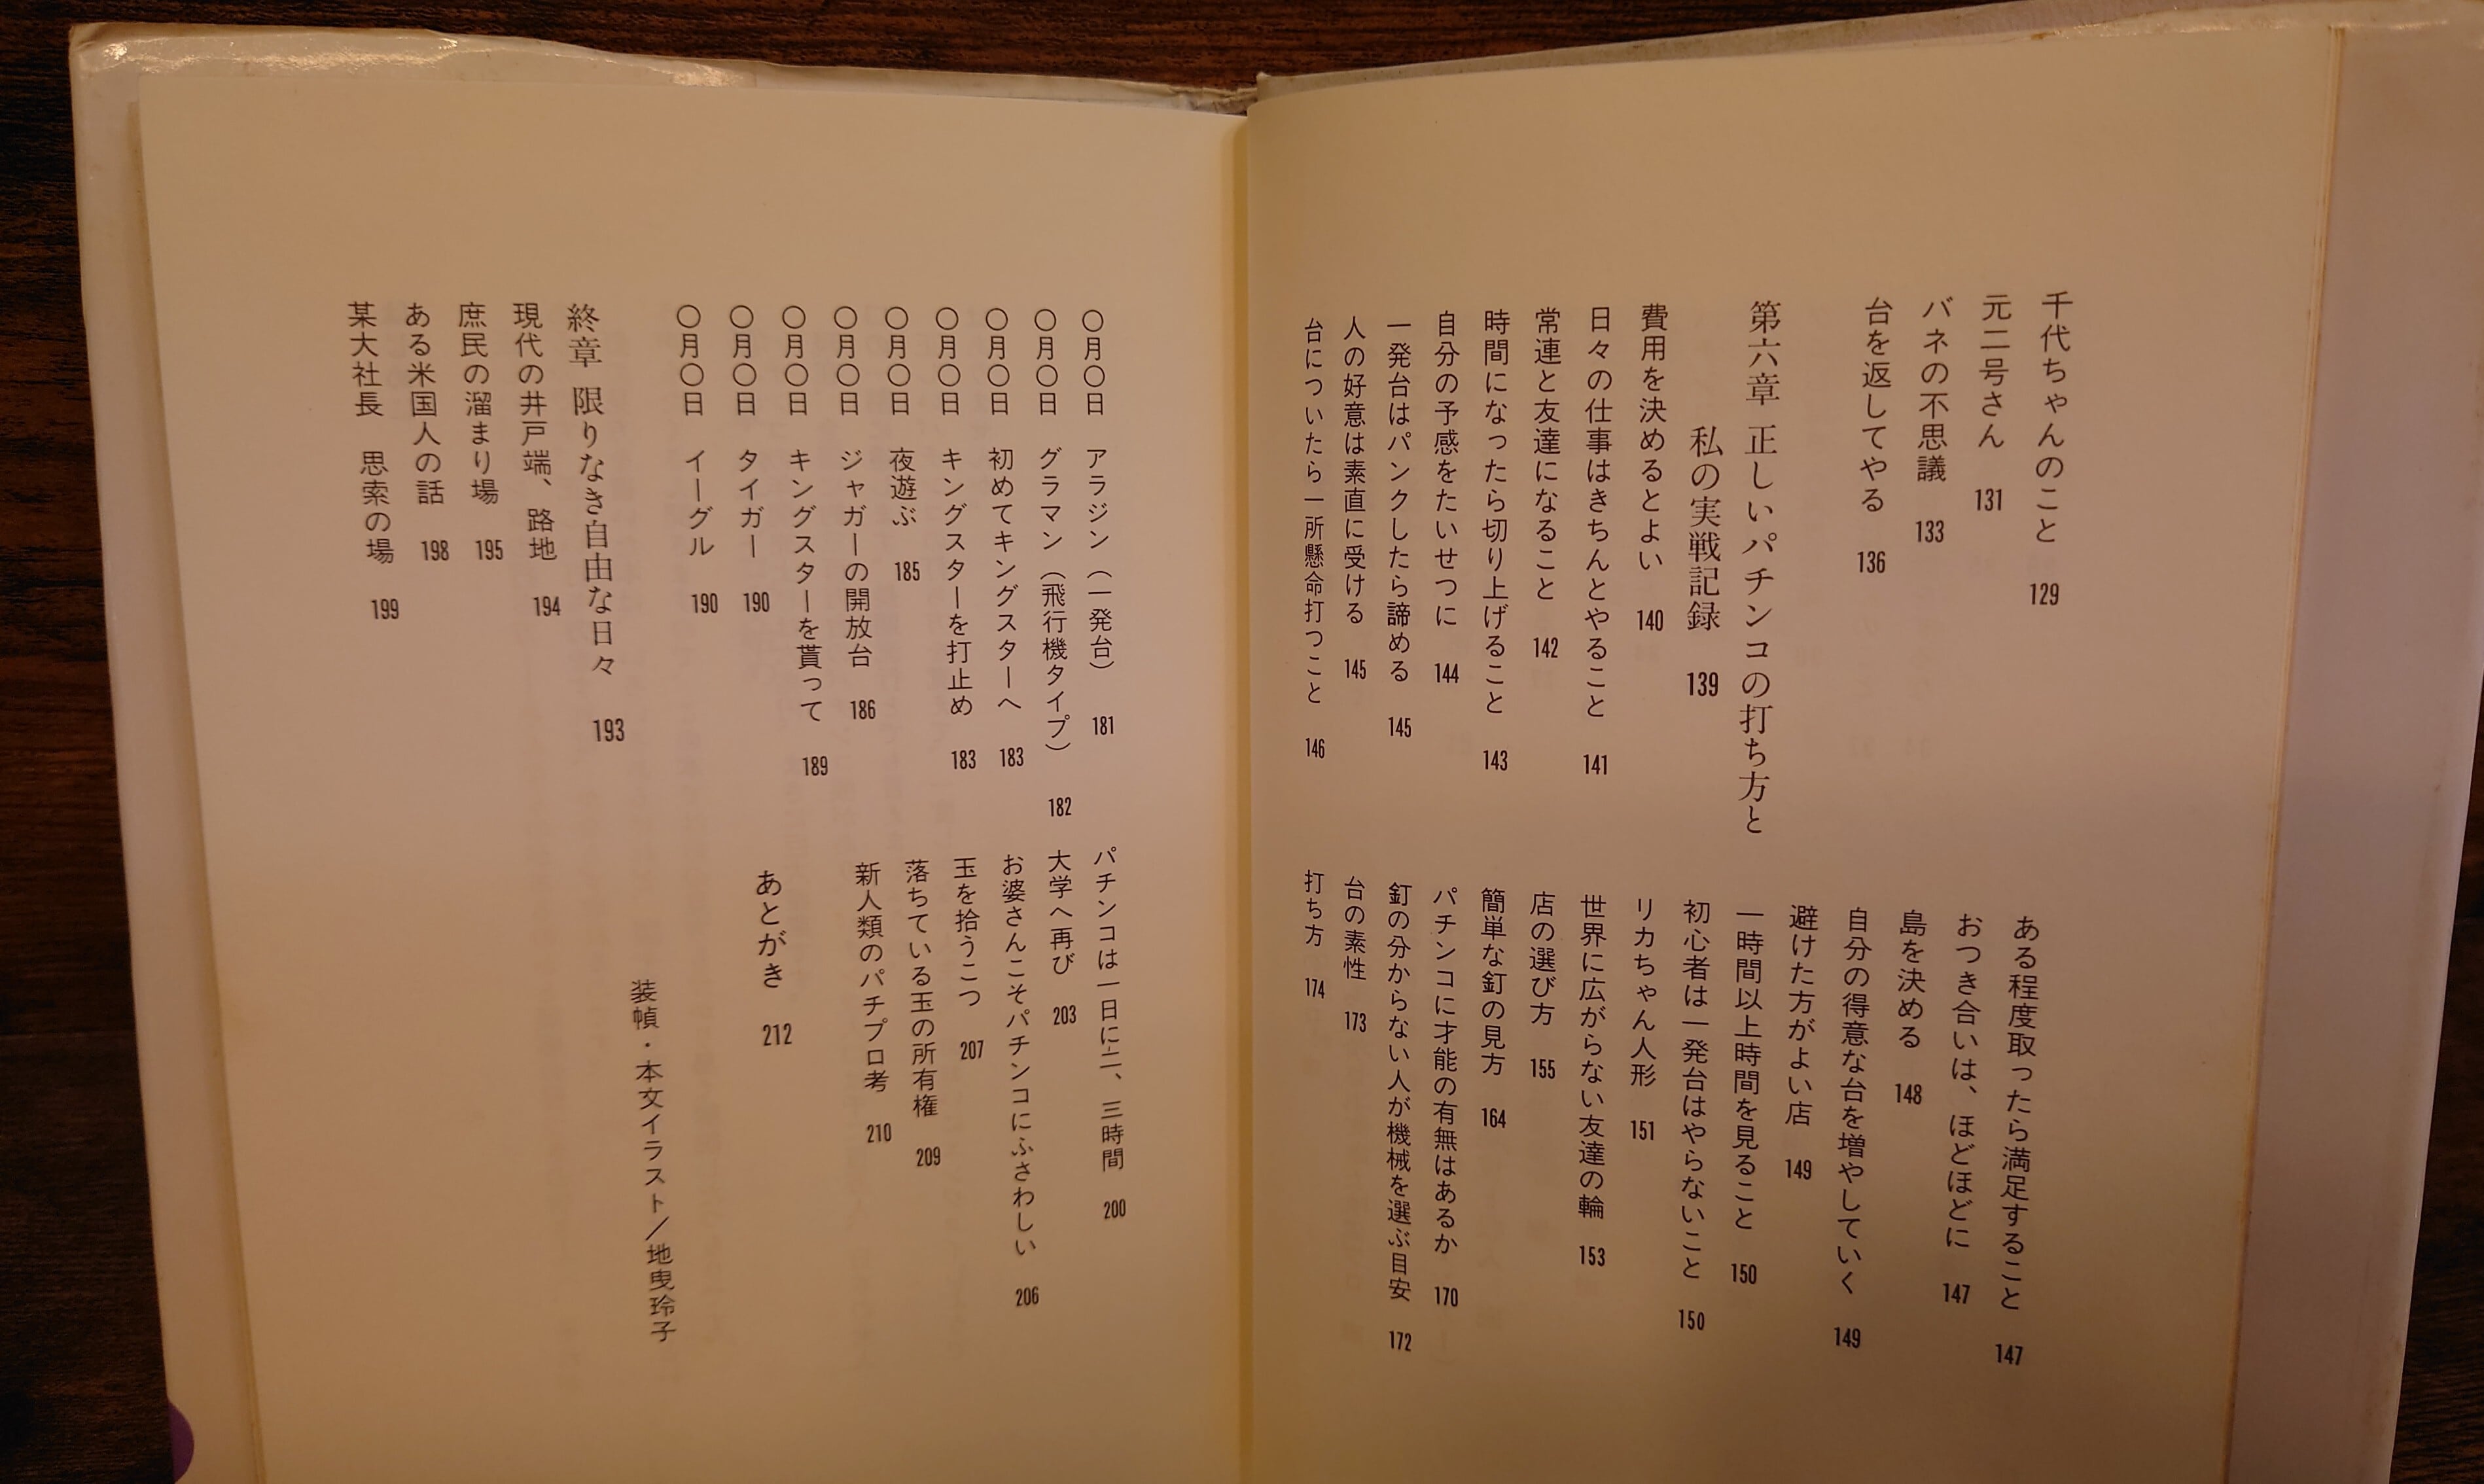 千代ちゃんのこと 129
元二号さん 131
バネの不思議 133
台を返してやる 136
第六章 正しいパチンコの打ち方と
私の実戦記録 139
費用を決めるとよい 140
日々の仕事はきちんとやること 141
常連と友達になること 142
時間になったら切り上げること 143
自分の予感をたいせつに 144
一発台はパンクしたら諦める 145
人の好意は素直に受ける 145
台についたら一所懸命打つこと 146
ある程度取ったら満足すること 147
おつき合いは、ほどほどに 147
島を決める 148
自分の得意な台を増やしていく 149
避けた方がよい店 149
一時間以上時間を見ること 150
初心者は一発台はやらないこと 150
リカちゃん人形 151
世界に広がらない友達の輪 153
店の選び方 155
簡単な釘の見方 164
パチンコに才能の有無はあるか 170
釘の分からない人が機械を選ぶ目安 172
台の素性 173
打ち方 174
〇月〇日 アラジン(一発台) 181
〇月〇日 グラマン(飛行機タイプ) 182
〇月〇日 初めてキングスターへ 183
〇月〇日 キングスターを打止め 183
〇月〇日 夜遊ぶ 185
〇月〇日 ジャガーの開放台 186
〇月〇日 キングスターを貰って 189
〇月〇日 タイガー 190
〇月〇日 イーグル 190
終章 限りなき自由な日々 193
現代の井戸端、路地 194
庶民の溜まり場 195
ある米国人の話 198
某大社長 思索の場 199
パチンコは一日に二、三時間 200
大学へ再び 203
お婆さんこそパチンコにふさわしい 206
玉を拾うこつ 207
落ちている玉の所有権 209
新人類のパチプロ考 210
あとがき 212
装幀・本文イラスト/地曳玲子